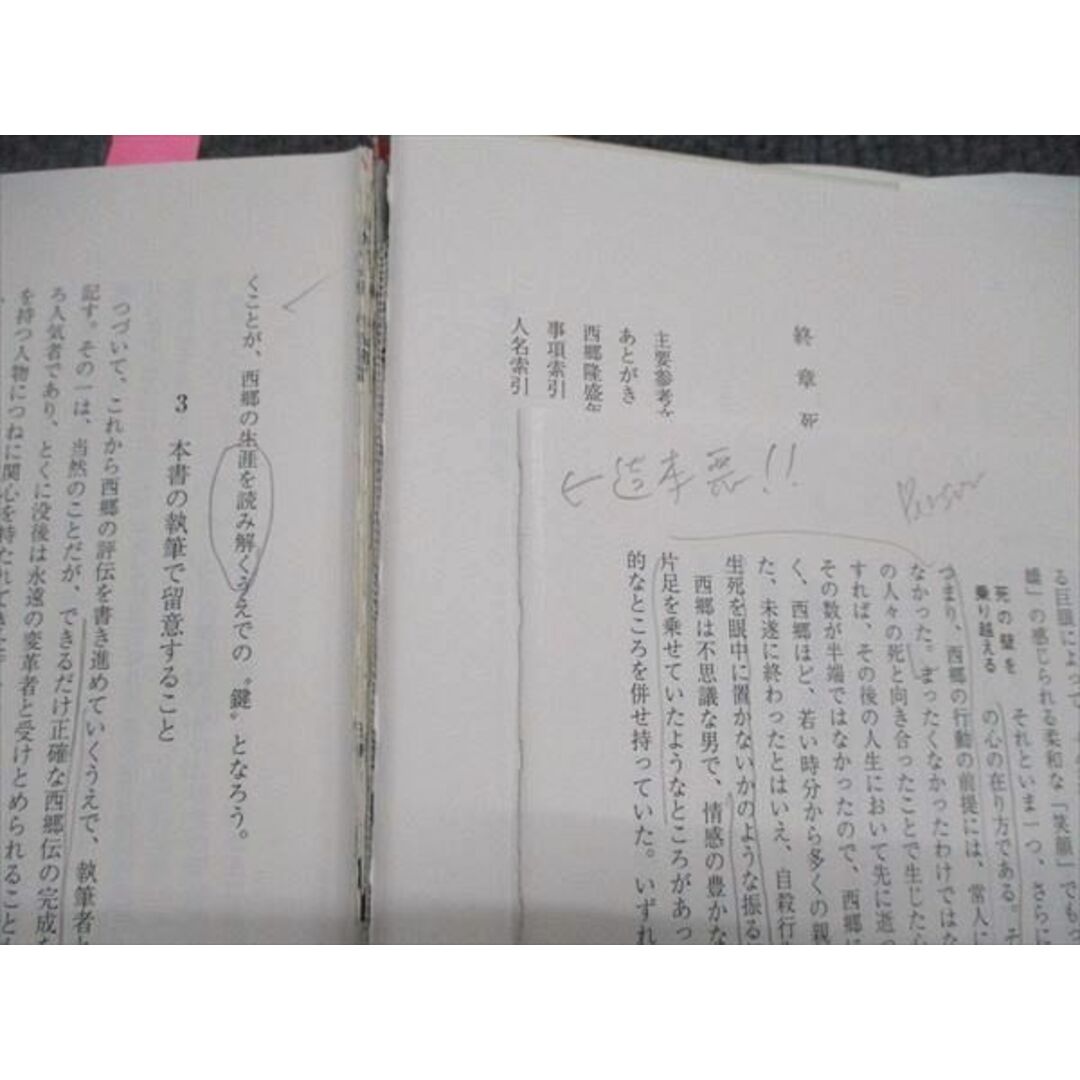 終章 死
主要参考文
あとがき
西郷隆盛年
事項索引
人名索引
←造本悪!!
Person
る巨眼によって
雄」の感じられる柔和な「笑顔」でもっ
死の壁を
乗り越える
それといま一つ、さらに
の心の在り方である。そ
つまり、西郷の行動の前提には、常人に
なかった。まったくなかったわけではな
の人々の死と向き合ったことで生じた心
すれば、その後の人生において先に逝っ
その数が半端ではなかったので、西郷に
く、西郷ほど、若い時分から多くの親
た、未遂に終わったとはいえ、自殺行
生死を眼中に置かないかのような振る
西郷は不思議な男で、情感の豊かな
片足を乗せていたようなところがあっ
的なところを併せ持っていた。いずれ
くことが、西郷の生涯を読み解くうえでの〝鍵〟となろう。
3 本書の執筆で留意すること
つづいて、これから西郷の評伝を書き進めていくうえで、執筆者と
記す。その一は、当然のことだが、できるだけ正確な西郷伝の完成を
ろ人気者であり、とくに没後は永遠の変革者と受けとめられること
を持つ人物につねに関心を持たれてきた。